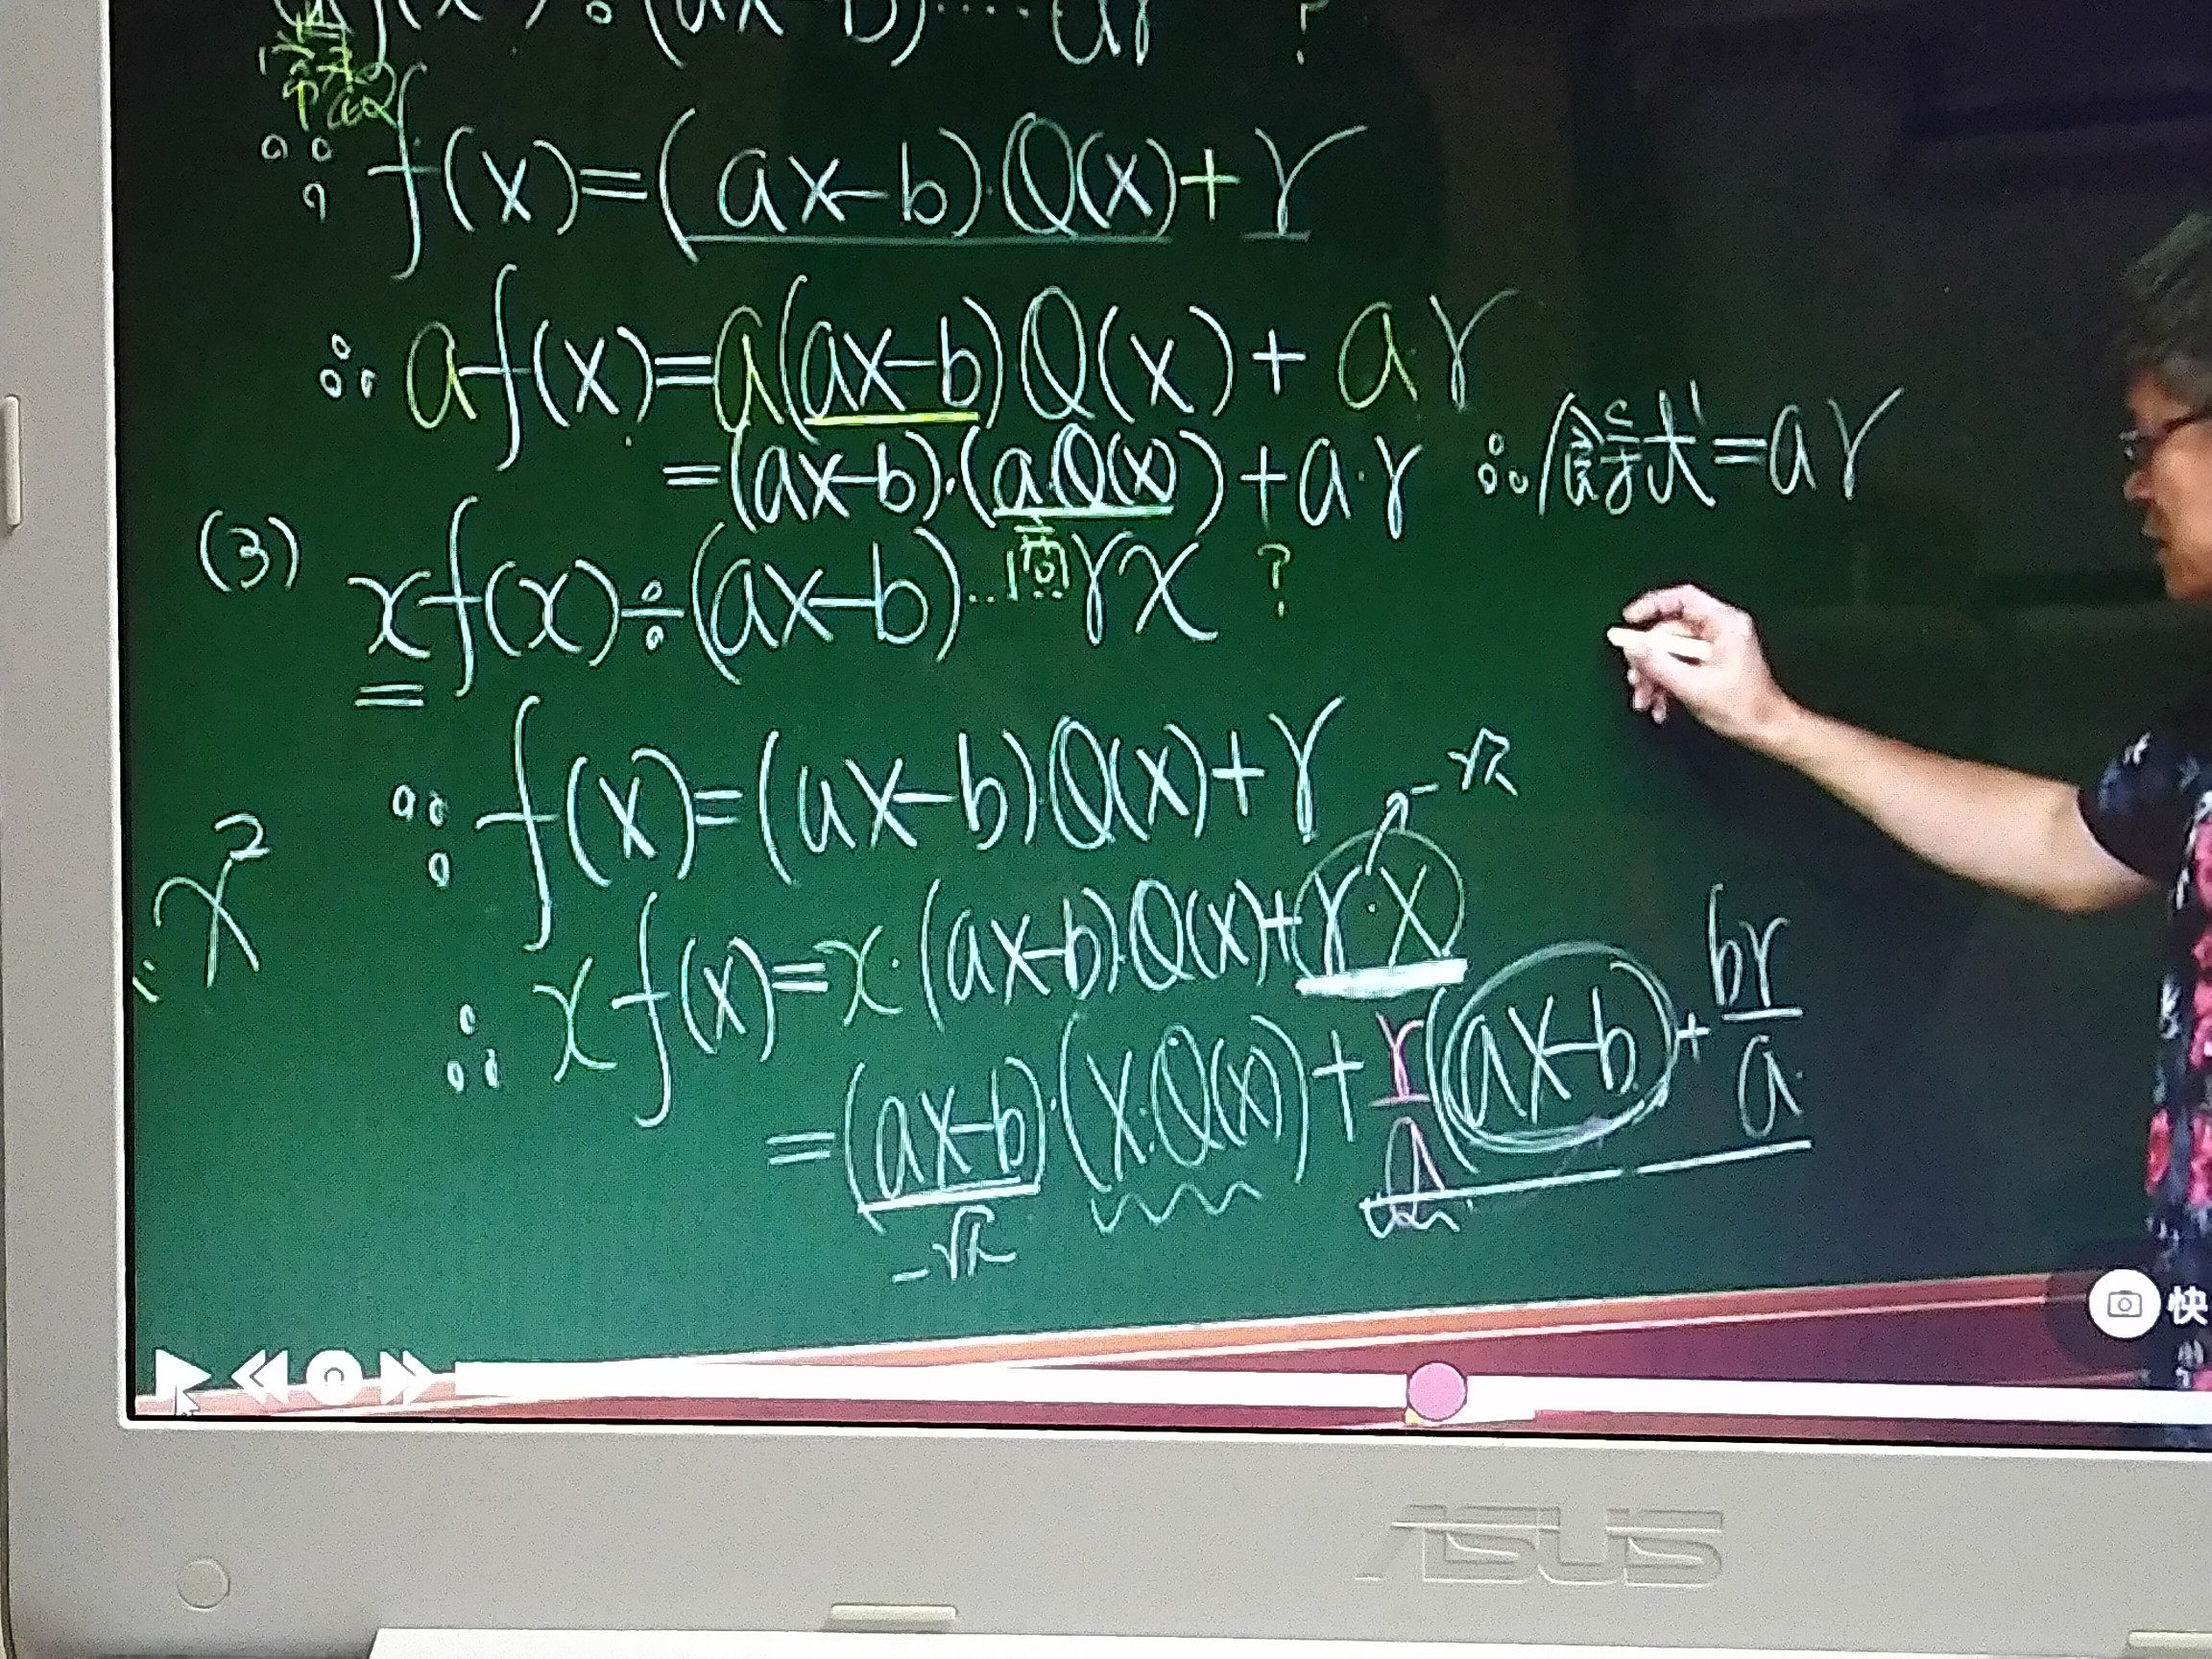 f(x)÷(ax-b)……ar ?
∵ f(x)=(ax-b)·Q(x)+r
∴ af(x)=a(ax-b)Q(x)+a·r
=(ax-b)·(a·Q(x))+a·r ∴餘式=ar
商
(3) xf(x)÷(ax-b)……rx ?
∵ f(x)=(ax-b)Q(x)+r
一次
x²
∴ xf(x)=x·(ax-b)·Q(x)+r·x
=(ax-b)·(x·Q(x))+r/a(ax-b)+br/a
一次
快
ASUS